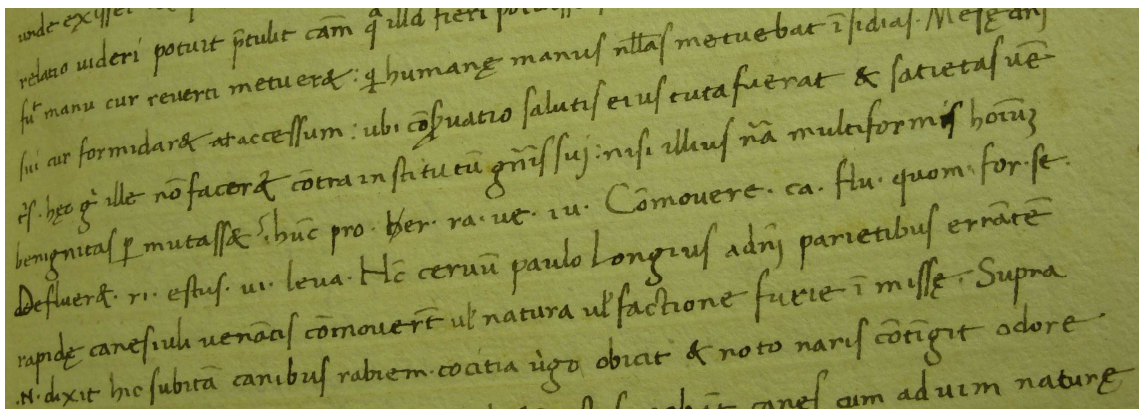 relatio uideri potuit p̄tulit cām q̄ illd fieri
fuͭ manu cur reuerti metuer& : q̨ humanę manus nl̄l̄as metuebat ī sidias. Messę
sui cur formidar& at accessum : ubi cōseruatio salutis eius tuta fuerat & satietas uē
hęc gͥ ille nō facer& cōtra institutū gn̄is suj : nisi illius nr̄a multiformis hoīuꝫ
benignitas ꝑ mutass& hūc pro. ber. ra. ue. iu. Cōmouere. ca. flu. quom. for. se.
Defluer&. ri. estus. ui. leua. Hc̄ ceruū paulo Longius adnj̄ parietibus errātē
rapidę canes iuli uenātis cōmouer̄t ul̄ natura ul̄ factione furie ī missę. Supra
.N. dixit hic subitā canibus rabiem. cocitia uͥgo obicit & noto naris cōtīgit odore
canes cum ad uim naturę